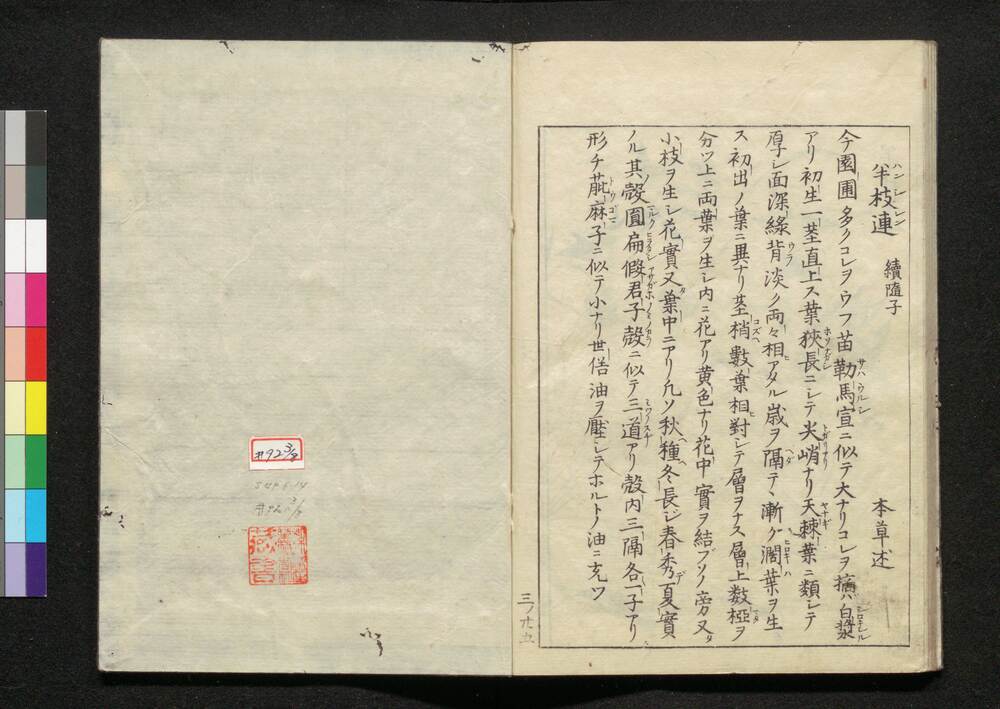 半枝連 續隨子 本草述
ハンシレン
今園圃多クコレヲウフ苗勒馬宣ニ似テ大ナリコレヲ摘ハ白漿
アリ初生一茎直上ス葉狹長ニシテ尖峭ナリ天棘葉ニ類シテ
厚シ面深緑背淡ク両々相アタル歳ヲ隔テ漸ク濶葉ヲ生
ス初出ノ葉ニ異ナリ茎梢數葉相對シテ層ヲナス層上数椏ヲ
分ツ上ニ両葉ヲ生シ内ニ花アリ黄色ナリ花中實ヲ結ブソノ旁又
小枝ヲ生シ花實又葉中ニアリ凡ソ秋種冬長ジ春秀夏實
ノル其殻圓扁假君子殻ニ似テ三道アリ殻内三隔各一子アリ
形チ萞麻子ニ似テ小ナリ世俗油ヲ壓シテホルトノ油ニ充ツ
三ノ廿五